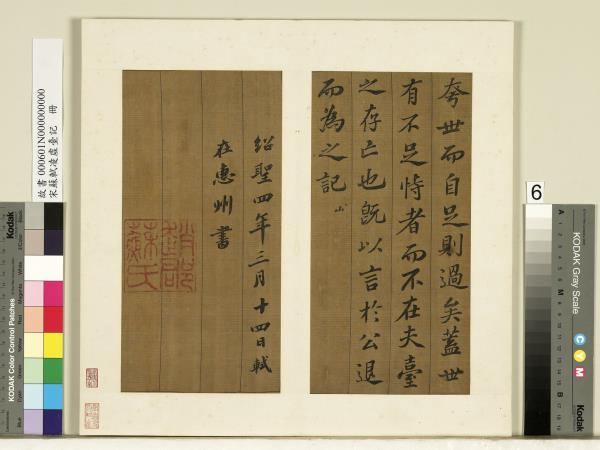 夸世而自足則過矣蓋世
有不足恃者而不在夫臺
之存亡也既以言於公退
而為之記
紹聖四年三月十四日軾
在惠州書
趙郡蘇氏
故書 000601N000000000
宋蘇軾凌虛臺記 冊
Kodak
KODAK Color Control Patches
6
KODAK Gray Scale
C Y M
Kodak
A 1 2 3 4 5 6 M 8 9 10 11 12 13 14 15 B 17 18 19